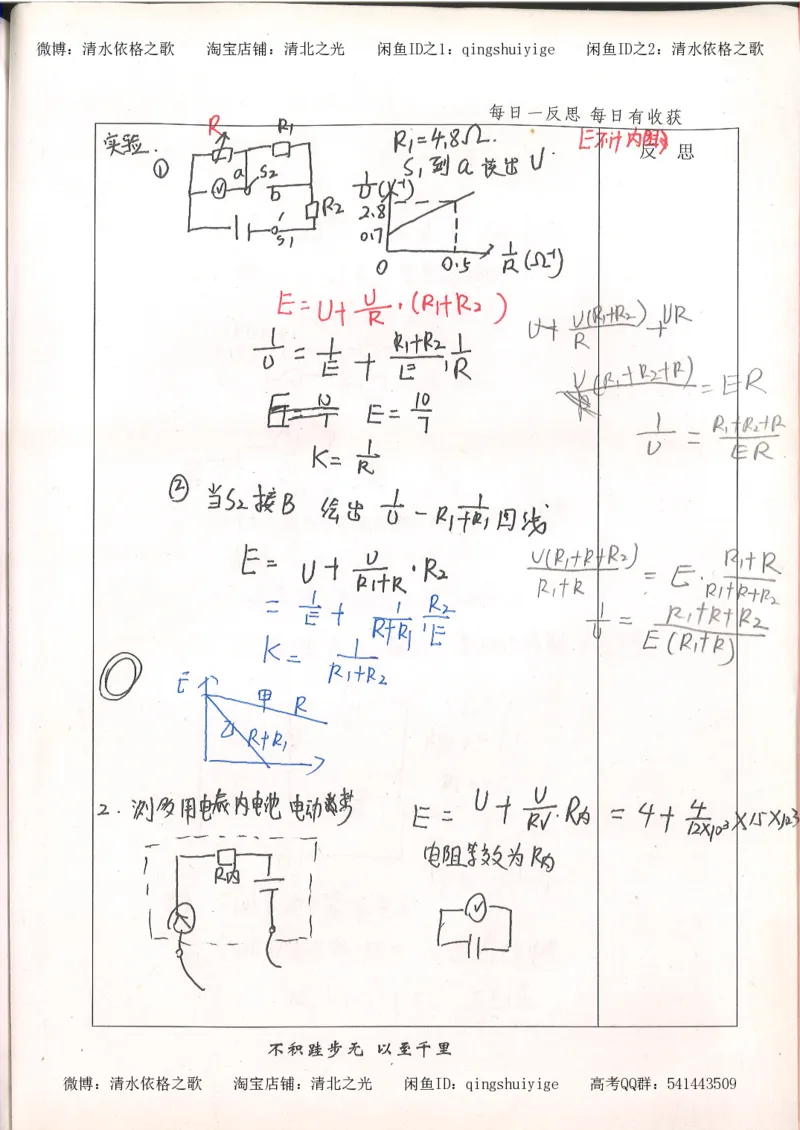 微博：清水依格之歌 淘宝店铺：清北之光 闲鱼ID之1：qingshuiyige 闲鱼ID之2：清水依格之歌
每日一反思 每日有收获
反思
实验.
①
R
R1
a
S2
b
V
R2
S1
R1=4.8Ω.
S1到a 读出U.
E不计内阻
1/U (V⁻¹)
2.8
0.7
0
0.5
1/R (Ω⁻¹)
E=U+U/R·(R1+R2)
1/U = 1/E + (R1+R2)/E · 1/R
E=10/7 E=10/7
K=1/R
U+U(R1+R2)/R+UR
(R1+R2+R)=ER
1/U = (R1+R2+R)/ER
② 当S2接B 绘出 1/U - R1 1/(+R1) 图线
E= U+U/(R1+R)·R2
= 1/E + 1/(R+R1) · R2/E
K= 1/(R1+R2)
U(R1+R+R2)/(R1+R) = E·(R1+R)/(R1+R+R2)
1/U = (R1+R+R2)/(E(R1+R))
E
甲 R
乙 R+R1
2. 测多用电表内电池 电动势
E= U+U/RV·R内 = 4+4/(12×10³)×15×10³
电阻等效为R内
R内
V
不积跬步无 以至千里
微博：清水依格之歌 淘宝店铺：清北之光 闲鱼ID：qingshuiyige 高考QQ群：541443509